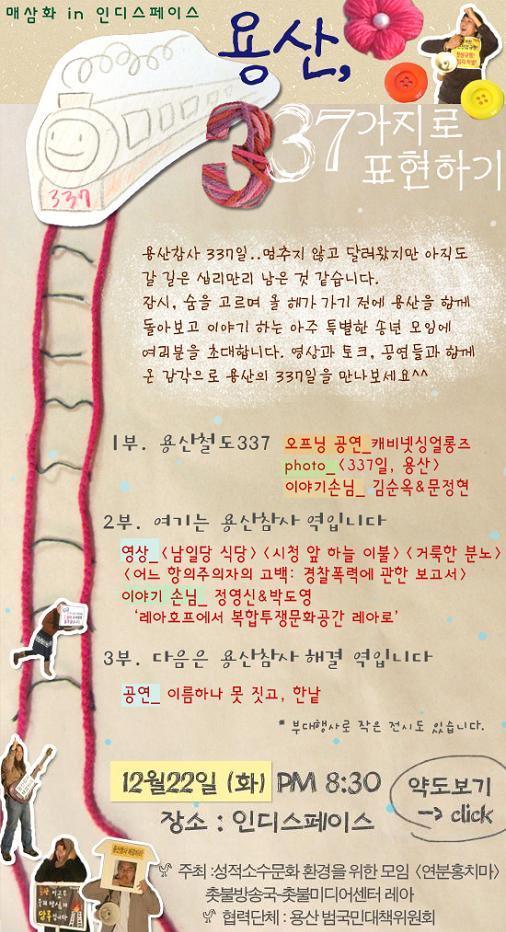 매삼화 in 인디스페이스
용산,
337가지로
표현하기
337
용산참사 337일..멈추지 않고 달려왔지만 아직도
갈 길은 십리만리 남은 것 같습니다.
잠시, 숨을 고르며 올 해가 가기 전에 용산을 함께
돌아보고 이야기 하는 아주 특별한 송년 모임에
여러분을 초대합니다. 영상과 토크, 공연들과 함께
온 감각으로 용산의 337일을 만나보세요^^
1부. 용산철도337 오프닝 공연_캐비넷싱얼롱즈
photo_<337일, 용산>
이야기손님_ 김순옥&문정현
2부. 여기는 용산참사 역입니다
영상_<남일당 식당><시청 앞 하늘 이불><거룩한 분노>
<어느 항의주의자의 고백: 경찰폭력에 관한 보고서>
이야기 손님_ 정영신&박도영
'레아호프에서 복합투쟁문화공간 레아로'
3부. 다음은 용산참사 해결 역입니다
공연_ 이름하나 못 짓고, 한낱
* 부대행사로 작은 전시도 있습니다.
12월22일 (화) PM 8:30
장소 : 인디스페이스
약도보기
→ click
주최 :성적소수문화 환경을 위한 모임 <연분홍치마>
촛불방송국-촛불미디어센터 레아
협력단체 : 용산 범국민대책위원회